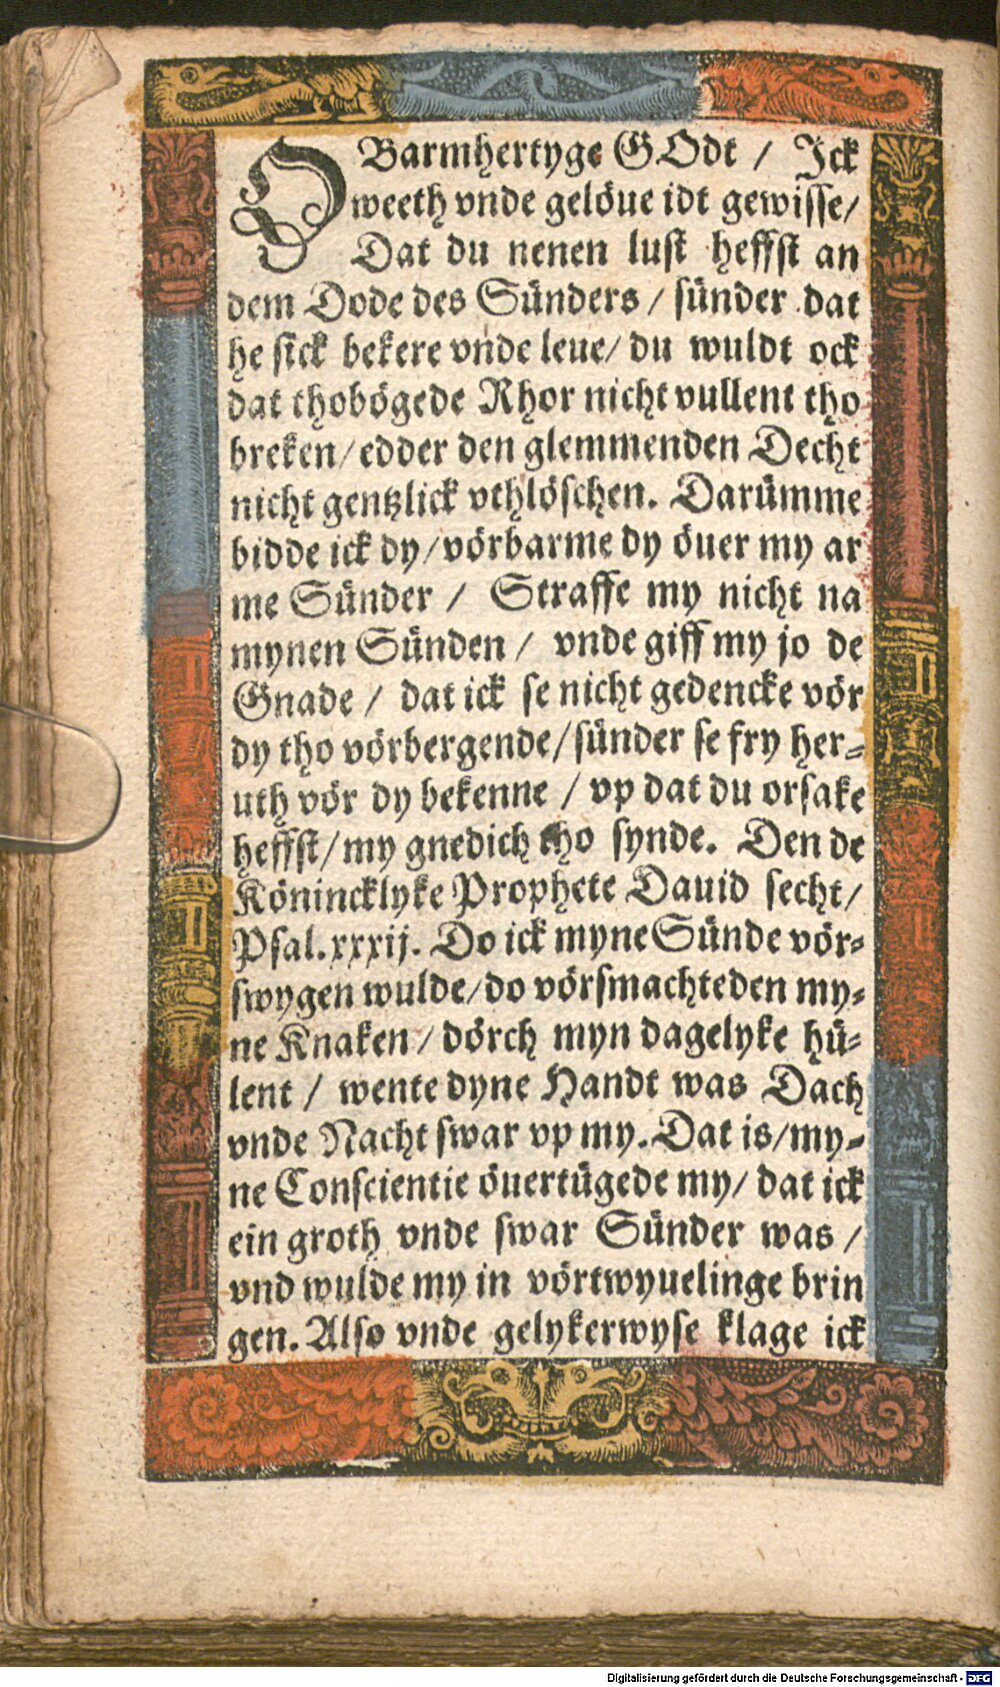 O Barmhertyge GOdt / Ick
weeth vnde gelöue idt gewisse/
Dat du nenen lust heffst an
dem Dode des Sünders / sünder dat
he sick bekere vnde leue/ du wuldt ock
dat thobögede Rhor nicht vullent tho
breken/ edder den glemmenden Decht
nicht gentzlick vthlöschen. Darümme
bidde ick dy/ vörbarme dy öuer my ar
me Sünder / Straffe my nicht na
mynen Sünden / vnde giff my jo de
Gnade / dat ick se nicht gedencke vör
dy tho vörbergende/ sünder se fry her-
uth vör dy bekenne / vp dat du orsake
heffst/ my gnedich tho synde. Den de
Könincklyke Prophete Dauid secht/
Psal. xxxij. Do ick myne Sünde vör-
swygen wulde/ do vörsmachteden my-
ne Knaken/ dörch myn dagelyke hü-
lent / wente dyne Handt was Dach
vnde Nacht swar vp my. Dat is/ my-
ne Conscientie öuertügede my/ dat ick
ein groth vnde swar Sünder was /
vnd wulde my in vörtwyuelinge brin
gen. Also vnde gelykerwyse klage ick
Digitalisierung gefördert durch die Deutsche Forschungsgemeinschaft - DFG